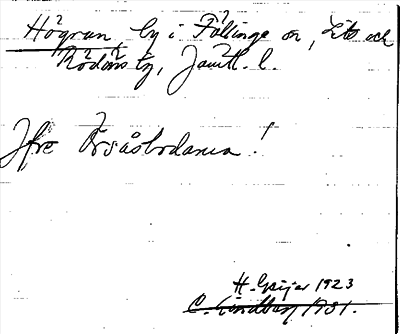 Högrun, by i Föllinge sn, Lits och
Rödöns tg, Jämtl. l.
Jfre Örsåsbodarna!
H. Geijer 1923
C. Lindberg 1931.